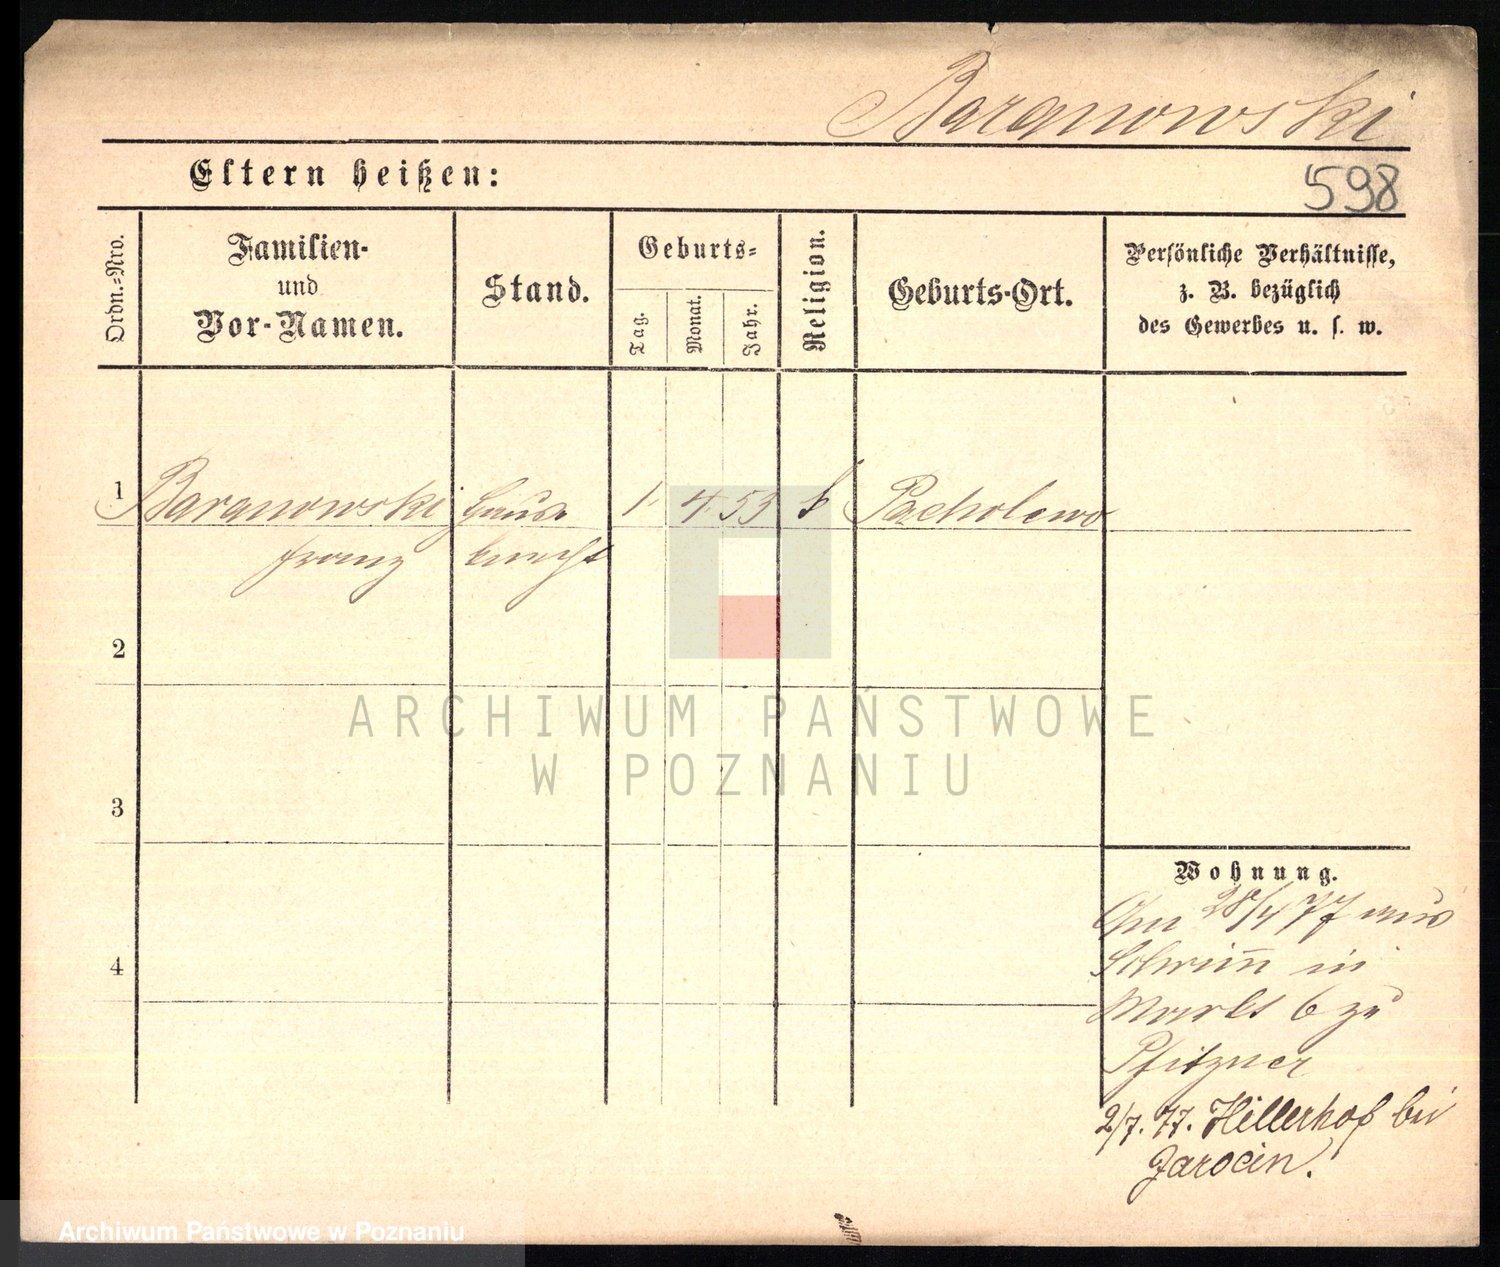 Baranowski
Eltern heißen:
598
Ordn.-Nro.
Familien-
und
Vor-Namen.
Stand.
Geburts-
Tag.
Monat.
Jahr.
Religion.
Geburts-Ort.
Persönliche Verhältnisse,
z. B. bezüglich
des Gewerbes u. s. w.
1 Baranowski Haus 1. 4. 53 k Pacholewo
Franz knecht
2
3
4
Wohnung.
Am 28/4 77 aus
Schrim̄ in
Markt 6 zu
Pfitzner
2/7. 77. Hillerhof bei
Jarocin.
ARCHIWUM PAŃSTWOWE
W POZNANIU
Archiwum Państwowe w Poznaniu